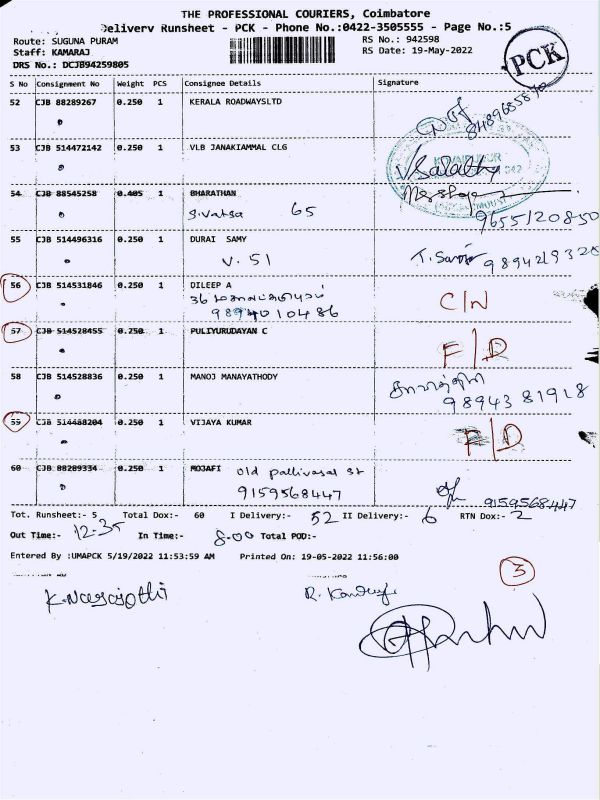 THE PROFESSIONAL COURIERS, Coimbatore
Delivery Runsheet - PCK - Phone No.:0422-3505555 - Page No.:5
Route: SUGUNA PURAM RS No.: 942598
Staff: KAMARAJ RS Date: 19-May-2022
DRS No.: DCJB94259805
PCK
S No Consignment No Weight PCS Consignee Details Signature
52 CJB 88289267 0.250 1 KERALA ROADWAYSLTD
53 CJB 514472142 0.250 1 VLB JANAKIAMMAL CLG
54 CJB 88545258 0.405 1 BHARATHAN
S.Vatsa 65 9655120850
55 CJB 514496316 0.250 1 DURAI SAMY
V. 51 9894219320
56 CJB 514531846 0.250 1 DILEEP A
36
9894010486 C/N
57 CJB 514528455 0.250 1 PULIYURUDAYAN C
F/D
58 CJB 514528836 0.250 1 MANOJ MANAYATHODY
98943 81918
59 CJB 514488204 0.250 1 VIJAYA KUMAR
F/D
60 CJB 88289334 0.250 1 MOJAFI Old pallivasal st
9159568447 9159568447
Tot. Runsheet:- 5 Total Dox:- 60 I Delivery:- 52 II Delivery:- 6 RTN Dox:- 2
Out Time:- 12-35 In Time:- 8.00 Total POD:-
Entered By :UMAPCK 5/19/2022 11:53:59 AM Printed On: 19-05-2022 11:56:00
3